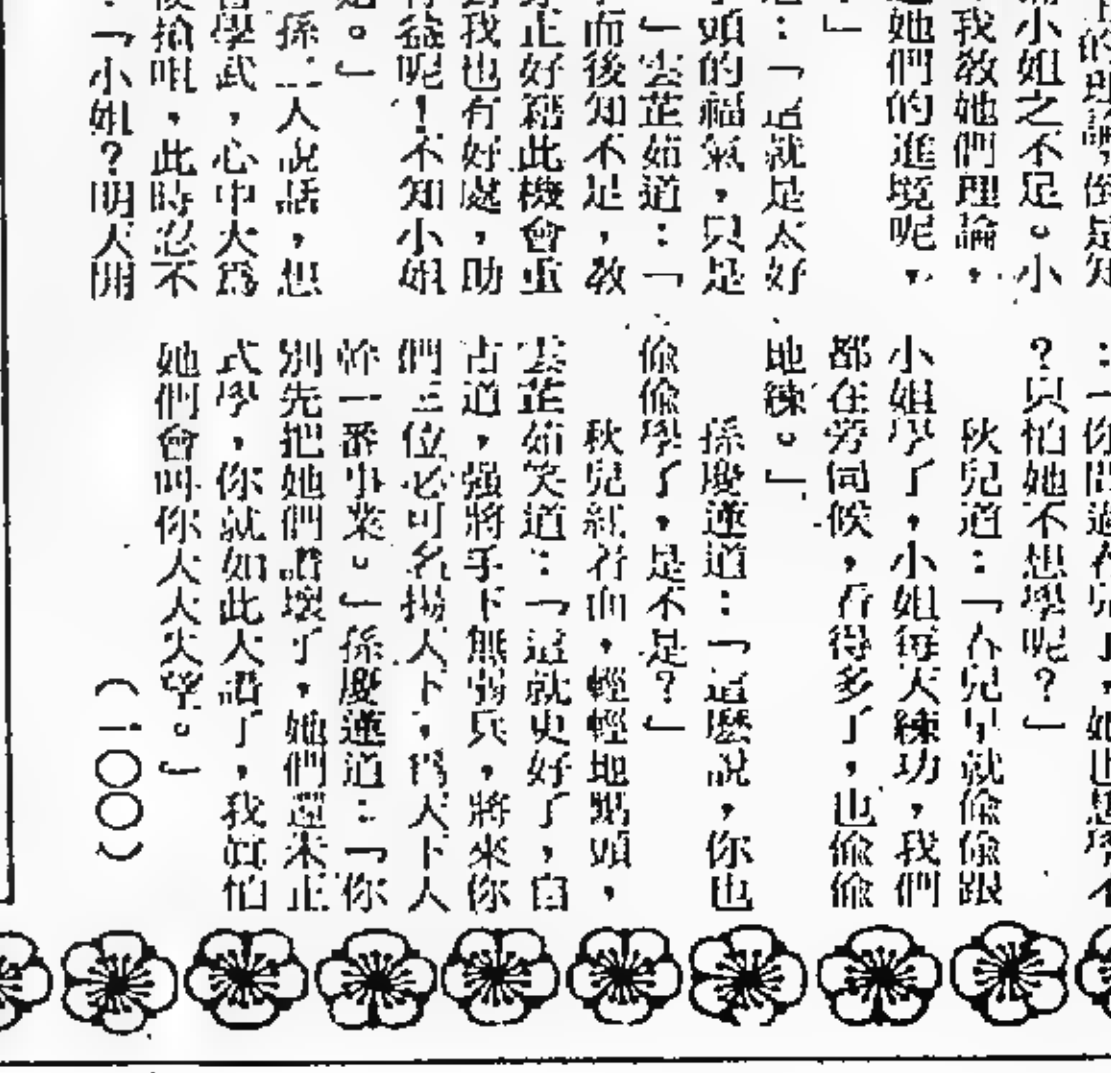 的理論，倒是
小姐之不足。小
我教她們理論，
她們的進境呢，
」
：「這就是太好
頭的福氣，只是
」雲芷茹道：「
而後知不足，教
正好藉此機會重
我也有好處，助
益呢！不知小姐
。」
孫二人說話，想
學武，心中大為
搶咀，此時忍不
：「小姐？明天開
：「你問過春兒了，她也想學不
？只怕她不想學呢？」
秋兒道：「春兒早就偷偷跟
小姐學了，小姐每天練功，我們
都在旁伺候，看得多了，也偷偷
地練。」
孫慶蓮道：「這麼說，你也
偷偷學了，是不是？」
秋兒紅着面，輕輕地點頭，
雲芷茹笑道：「這就更好了，自
古道，强將手下無弱兵，將來你
們三位必可名揚天下，爲天下人
幹一番事業。」孫慶蓮道：「你
別先把她們讚壞了，她們還未正
式學，你就如此大讚了，我眞怕
她們會叫你大大失望。」
（一〇〇）